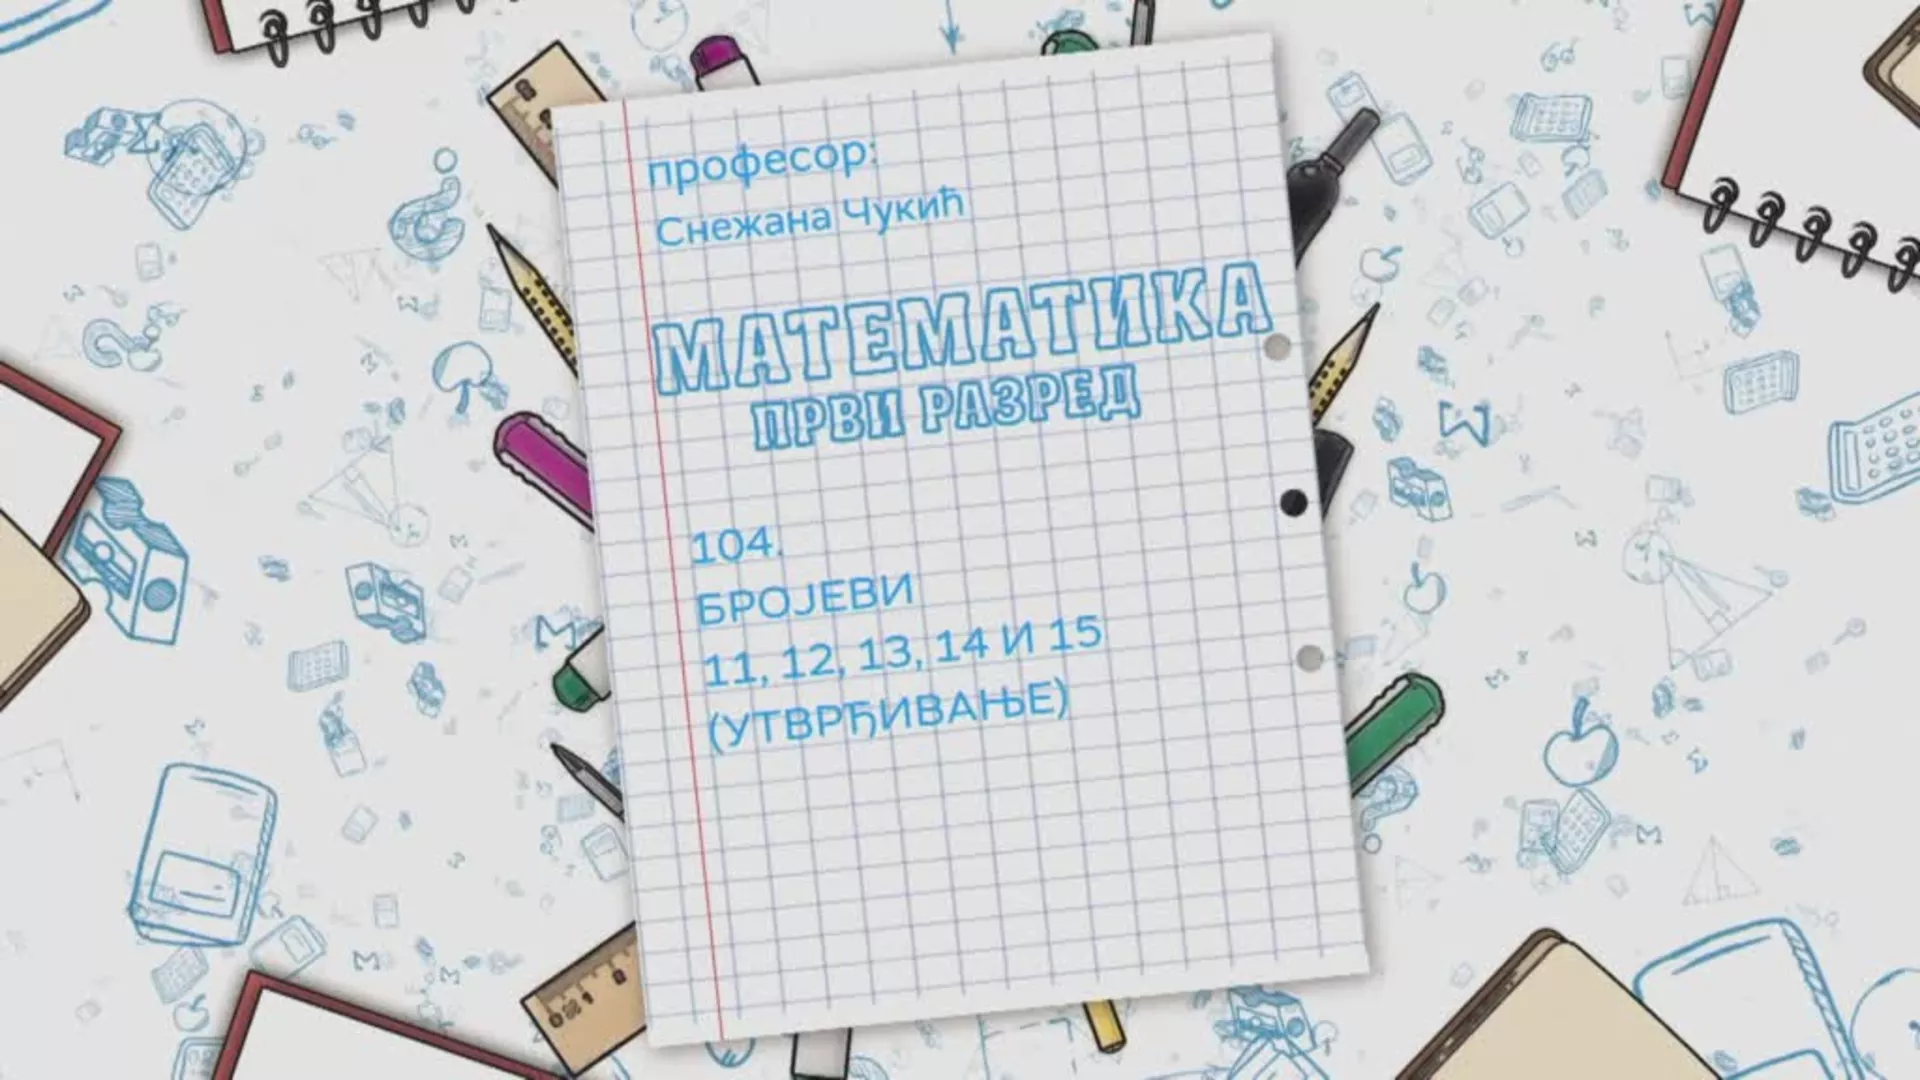 професор:
Снежана Чукић
МАТЕМАТИКА
ПРВИ РАЗРЕД
104.
БРОЈЕВИ
11, 12, 13, 14 И 15
(УТВРЂИВАЊЕ)